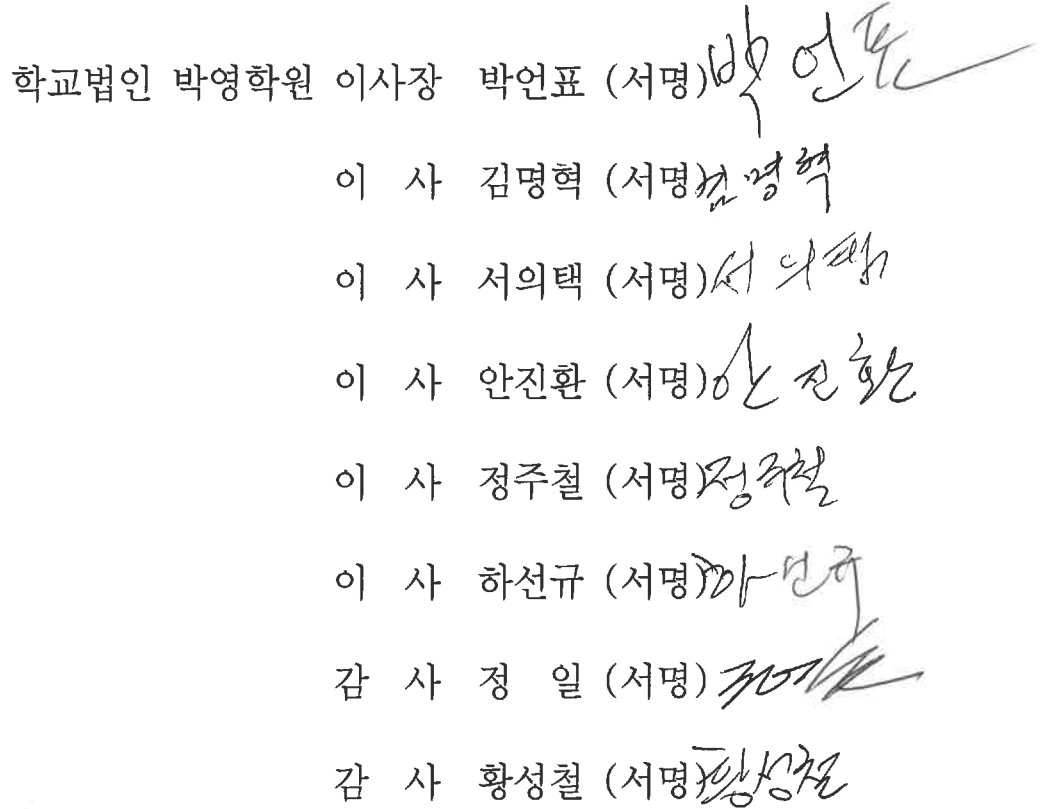 학교법인 박영학원 이사장 박언표 (서명) 박언표
이 사 김명혁 (서명) 김명혁
이 사 서의택 (서명) 서의택
이 사 안진환 (서명) 안진환
이 사 정주철 (서명) 정주철
이 사 하선규 (서명) 하선규
감 사 정 일 (서명)
감 사 황성철 (서명) 황성철